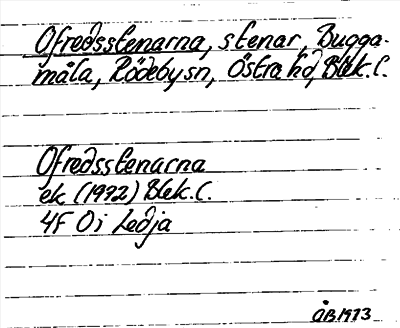 Ofredsstenarna, stenar, Bugga-
måla, Rödebysn, Östra hd, Blek.l.
Ofredsstenarna
ek (1972) Blek.l.
4F 0i Ledja
ÅB 1973